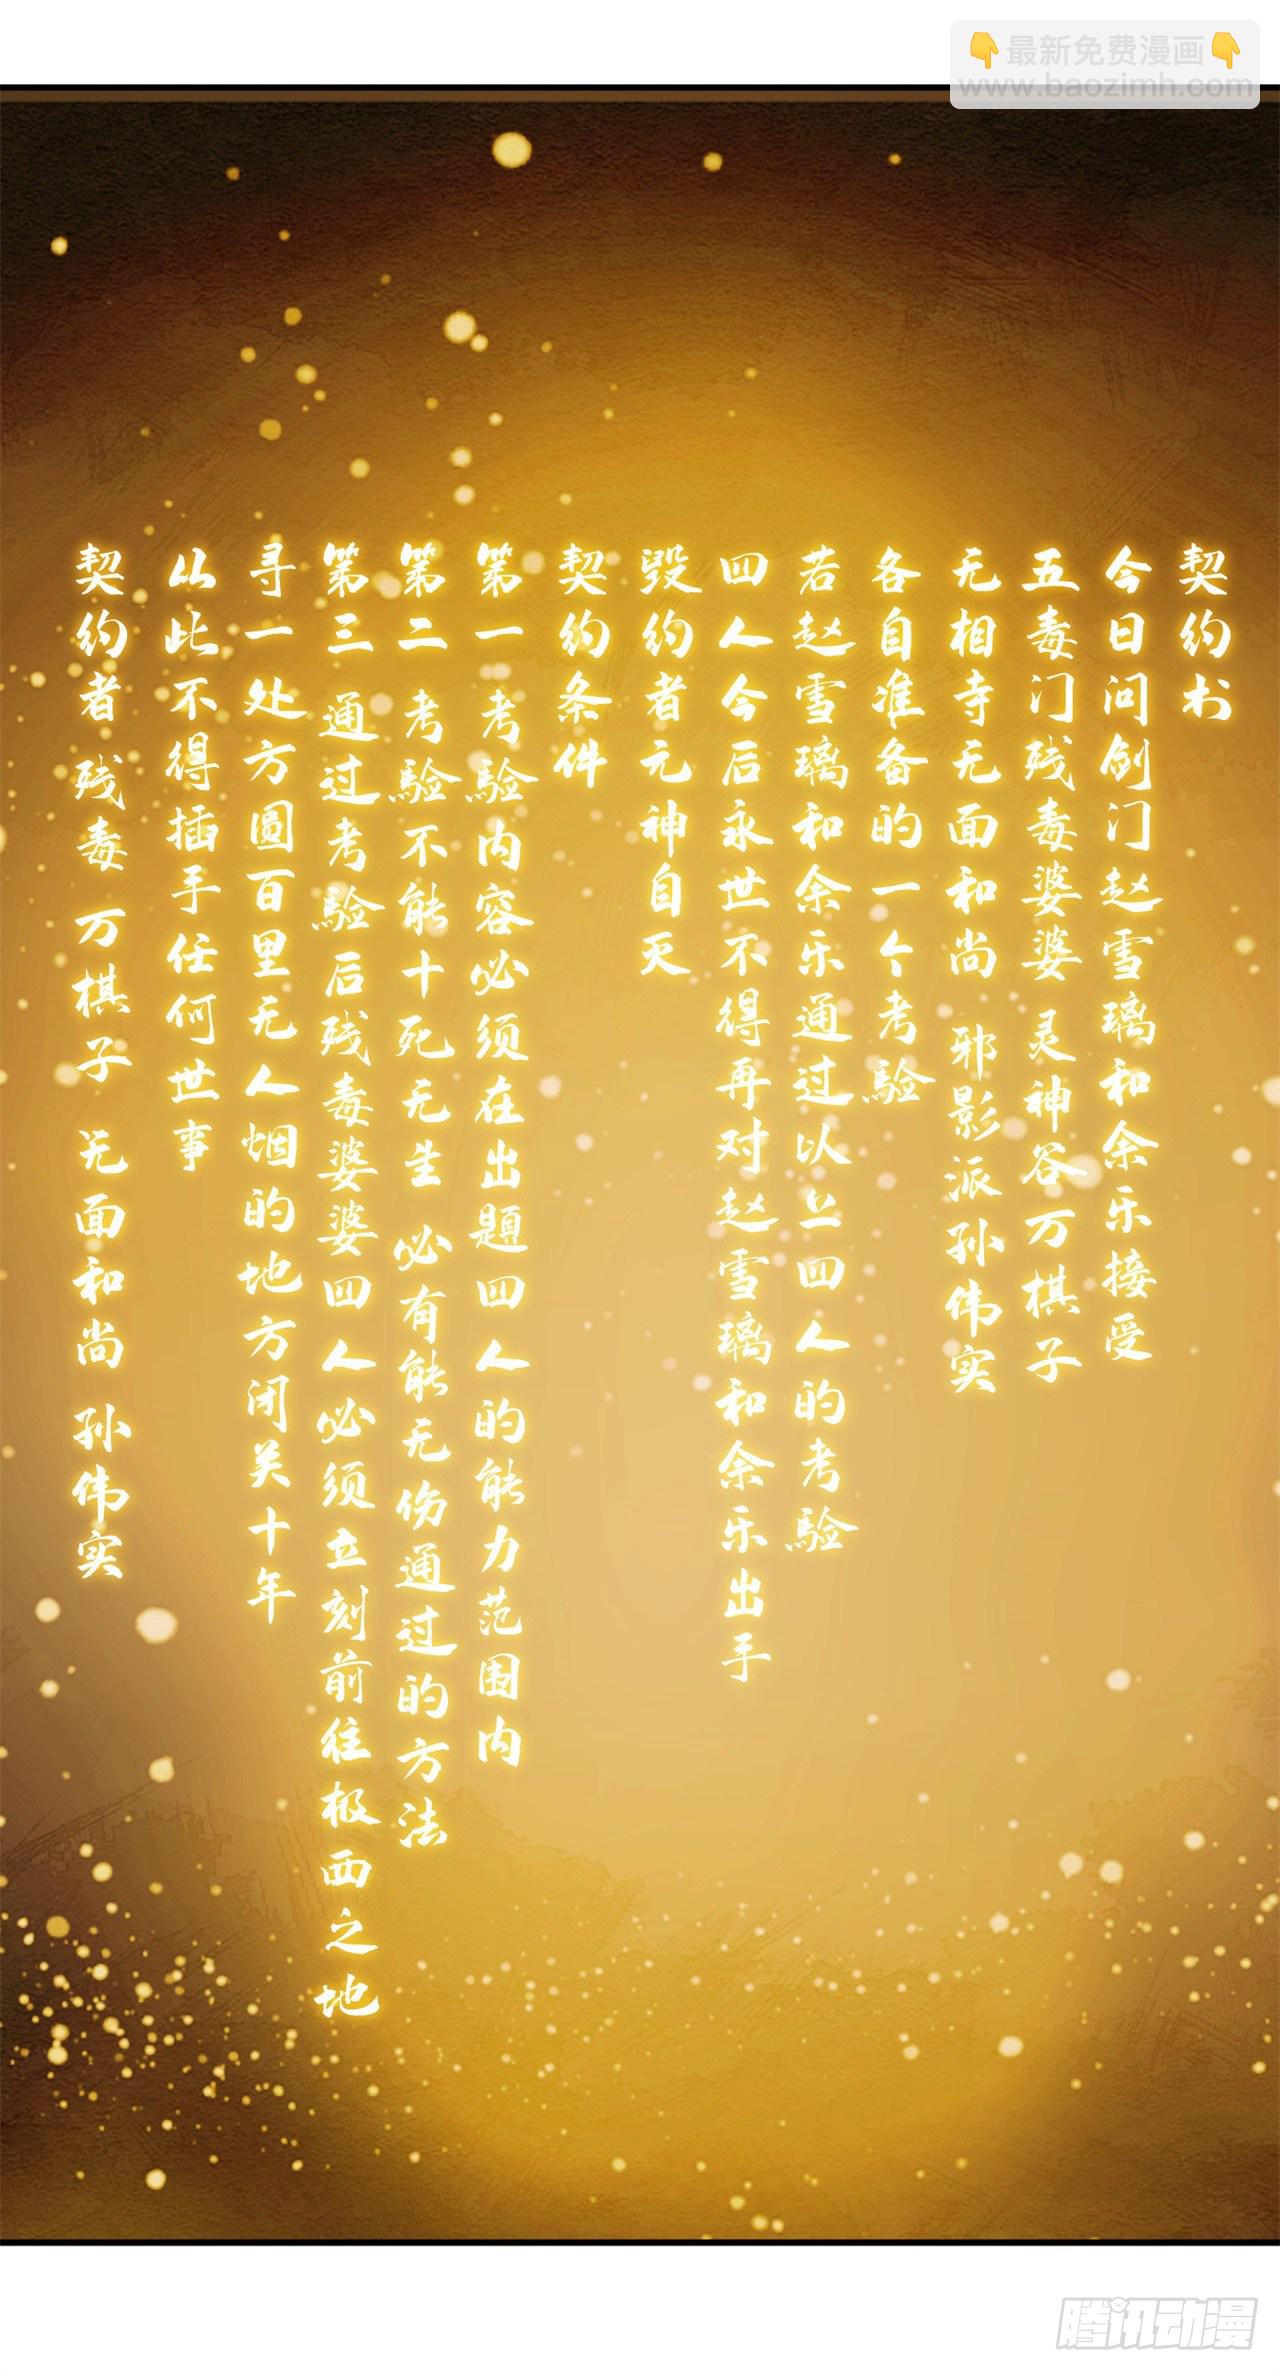 👇最新免费漫画👇
www.baozimh.com
契约书
今日问剑门赵雪璃和余乐接受
五毒门残毒婆婆 灵神谷万棋子
无相寺无面和尚 邪影派孙伟实
各自准备的一个考驗
若赵雪璃和余乐通过以上四人的考驗
四人今后永世不得再对赵雪璃和余乐出手
毁约者元神自灭
契约条件
第一 考驗内容必须在出題四人的能力范围内
第二 考驗不能十死无生 必有能无伤通过的方法
第三 通过考驗后残毒婆婆四人必须立刻前往极西之地
寻一处方圆百里无人烟的地方闭关十年
从此不得插手任何世事
契约者 残毒 万棋子 无面和尚 孙伟实
腾讯动漫